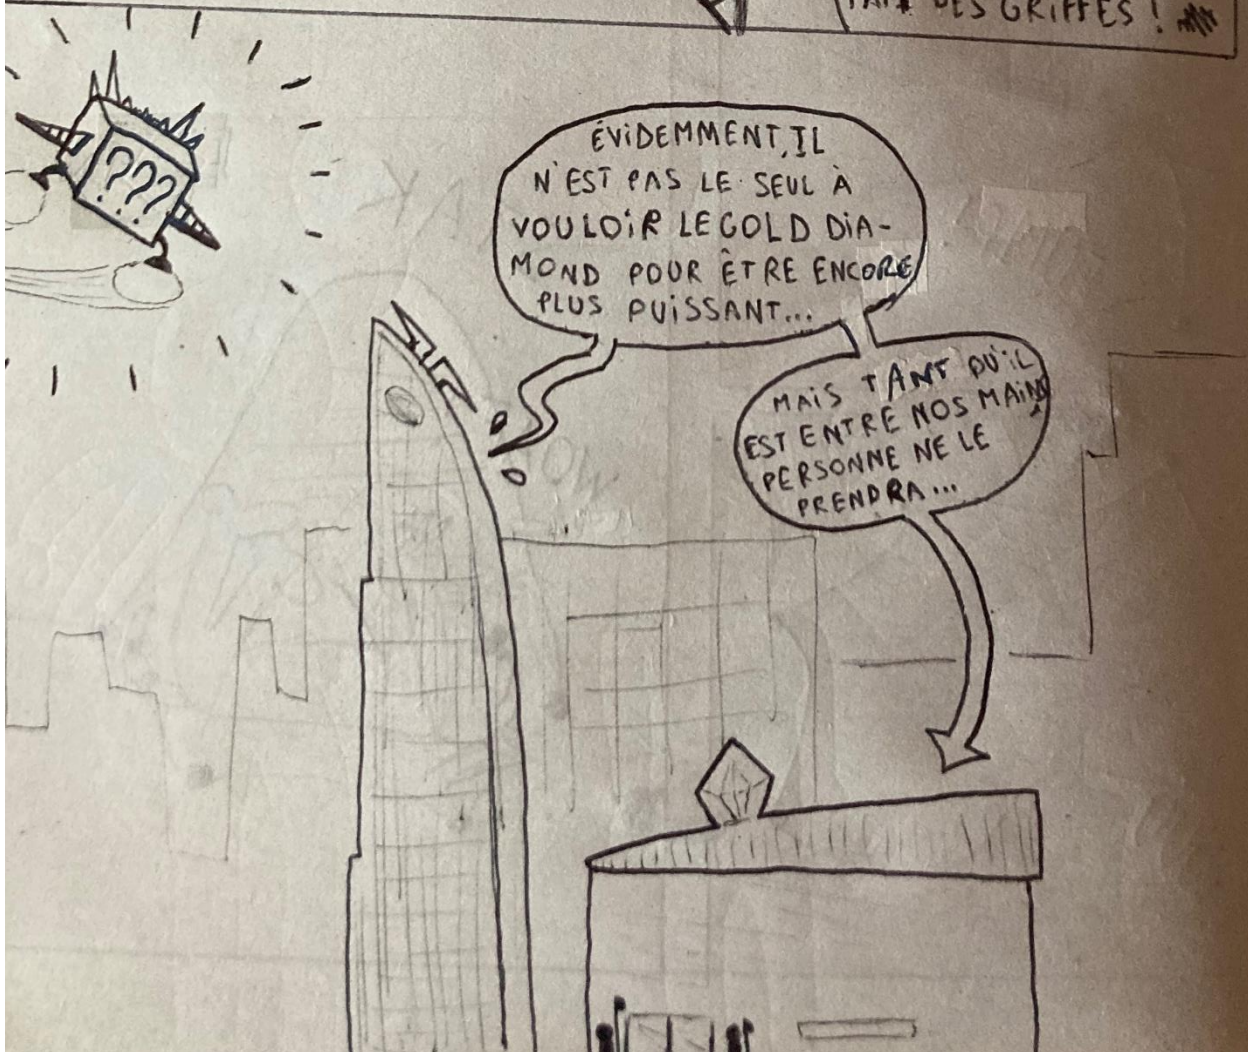 DES GRIFFES !
???
ÉVIDEMMENT, IL
N'EST PAS LE SEUL À
VOULOIR LE GOLD DIA-
MOND POUR ÊTRE ENCORE
PLUS PUISSANT...
MAIS TANT QU'IL
EST ENTRE NOS MAINS
PERSONNE NE LE
PRENDRA...